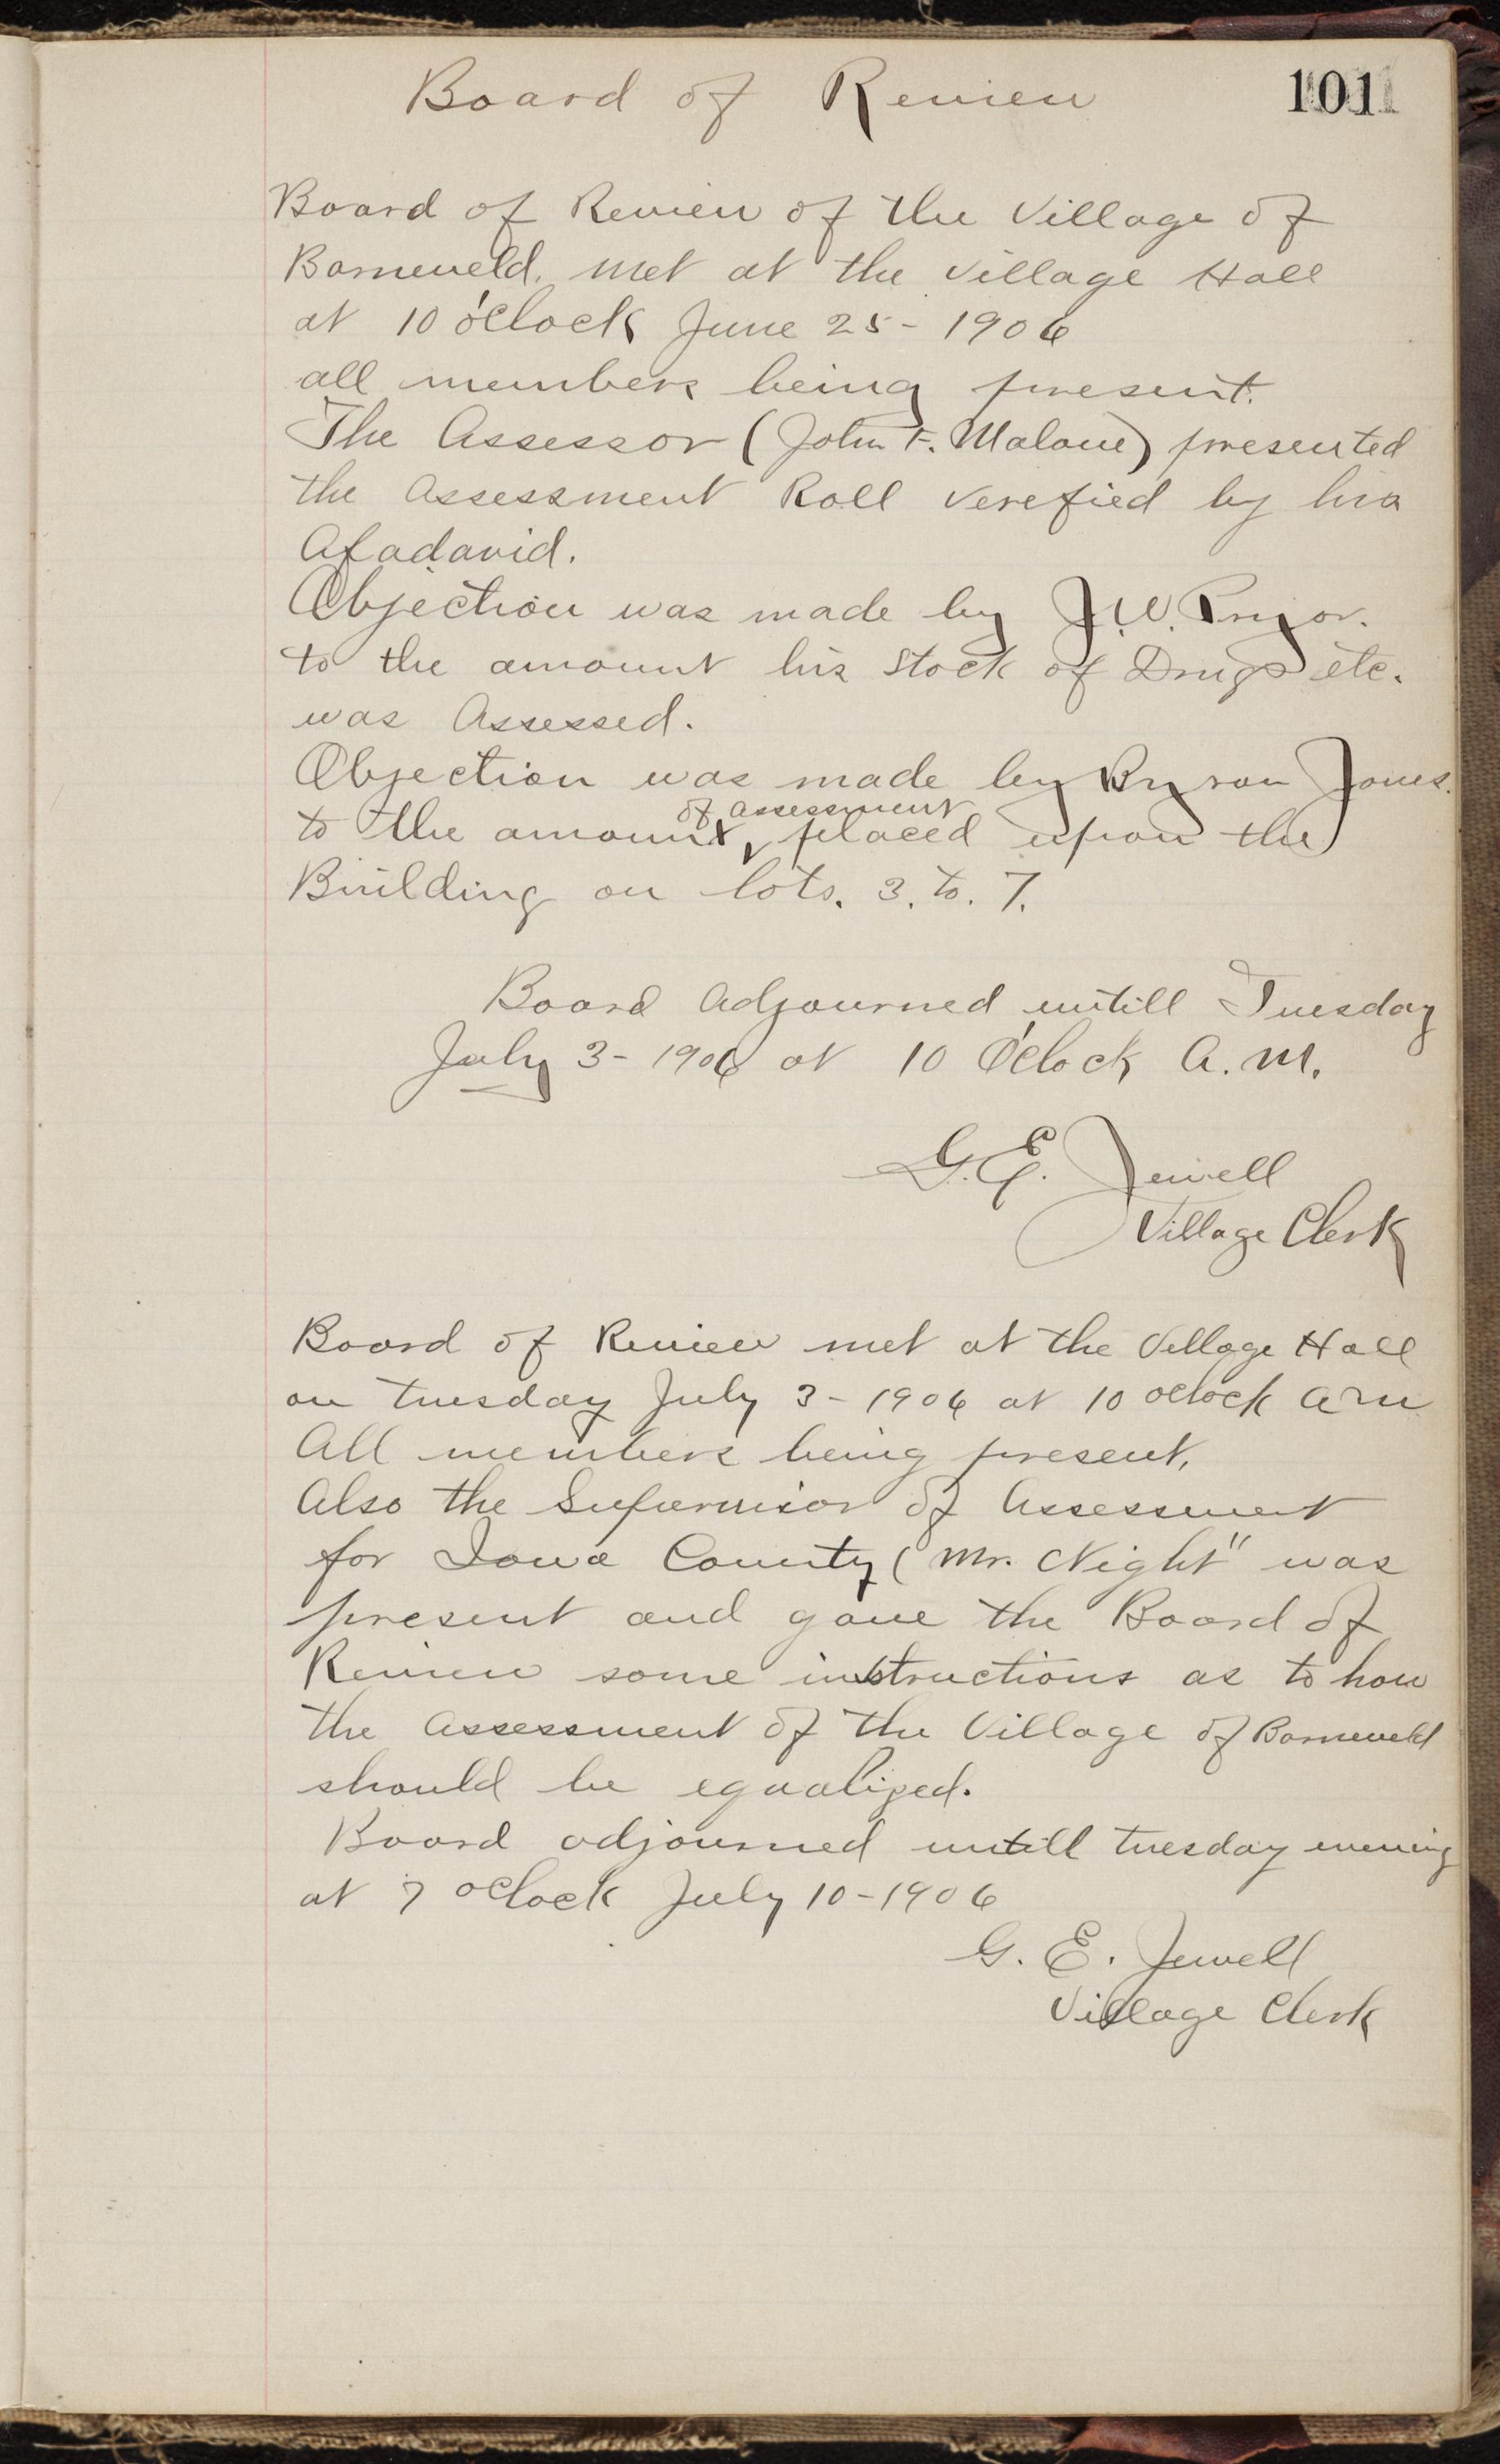 Board of Review
101
Board of Review of the Village of
Barneveld. met at the Village Hall
at 10 o'Clock June 25 - 1906
all members being present.
The Assessor (John F. Malone) presented
the Assessment Roll Verefied by his
Afadavid.
Objection was made by J.W. Pryor.
to the amount his Stock of Drugs etc.
was Assessed.
Objection was made by Byron Jones.
of assessment
to the amount placed upon the
Building on lots. 3. to. 7.
Board Adjourned untill Tuesday
July 3 - 1906 at 10 O'Clock A. M.
G. E. Jewell
Village Clerk
Board of Review met at the Village Hall
on Tuesday July 3 - 1906 at 10 oclock am
All members being present,
Also the Supervisor of Assessment
for Iowa County ( Mr. Night" was
present and gave the Board of
Review some instructions as to how
the Assessment of the Village of Barneveld
should be equalized.
Board adjourned untill Tuesday evening
at 7 oclock July 10 - 1906
G. E. Jewell
Village Clerk